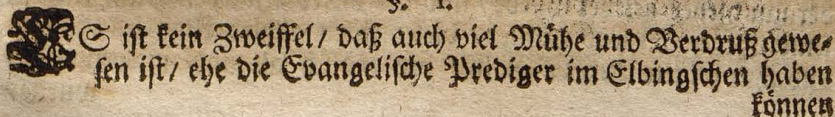 §. 1.
ES ist kein Zweiffel/ daß auch viel Mühe und Verdruß gewe-
sen ist/ ehe die Evangelische Prediger im Elbingschen haben
können